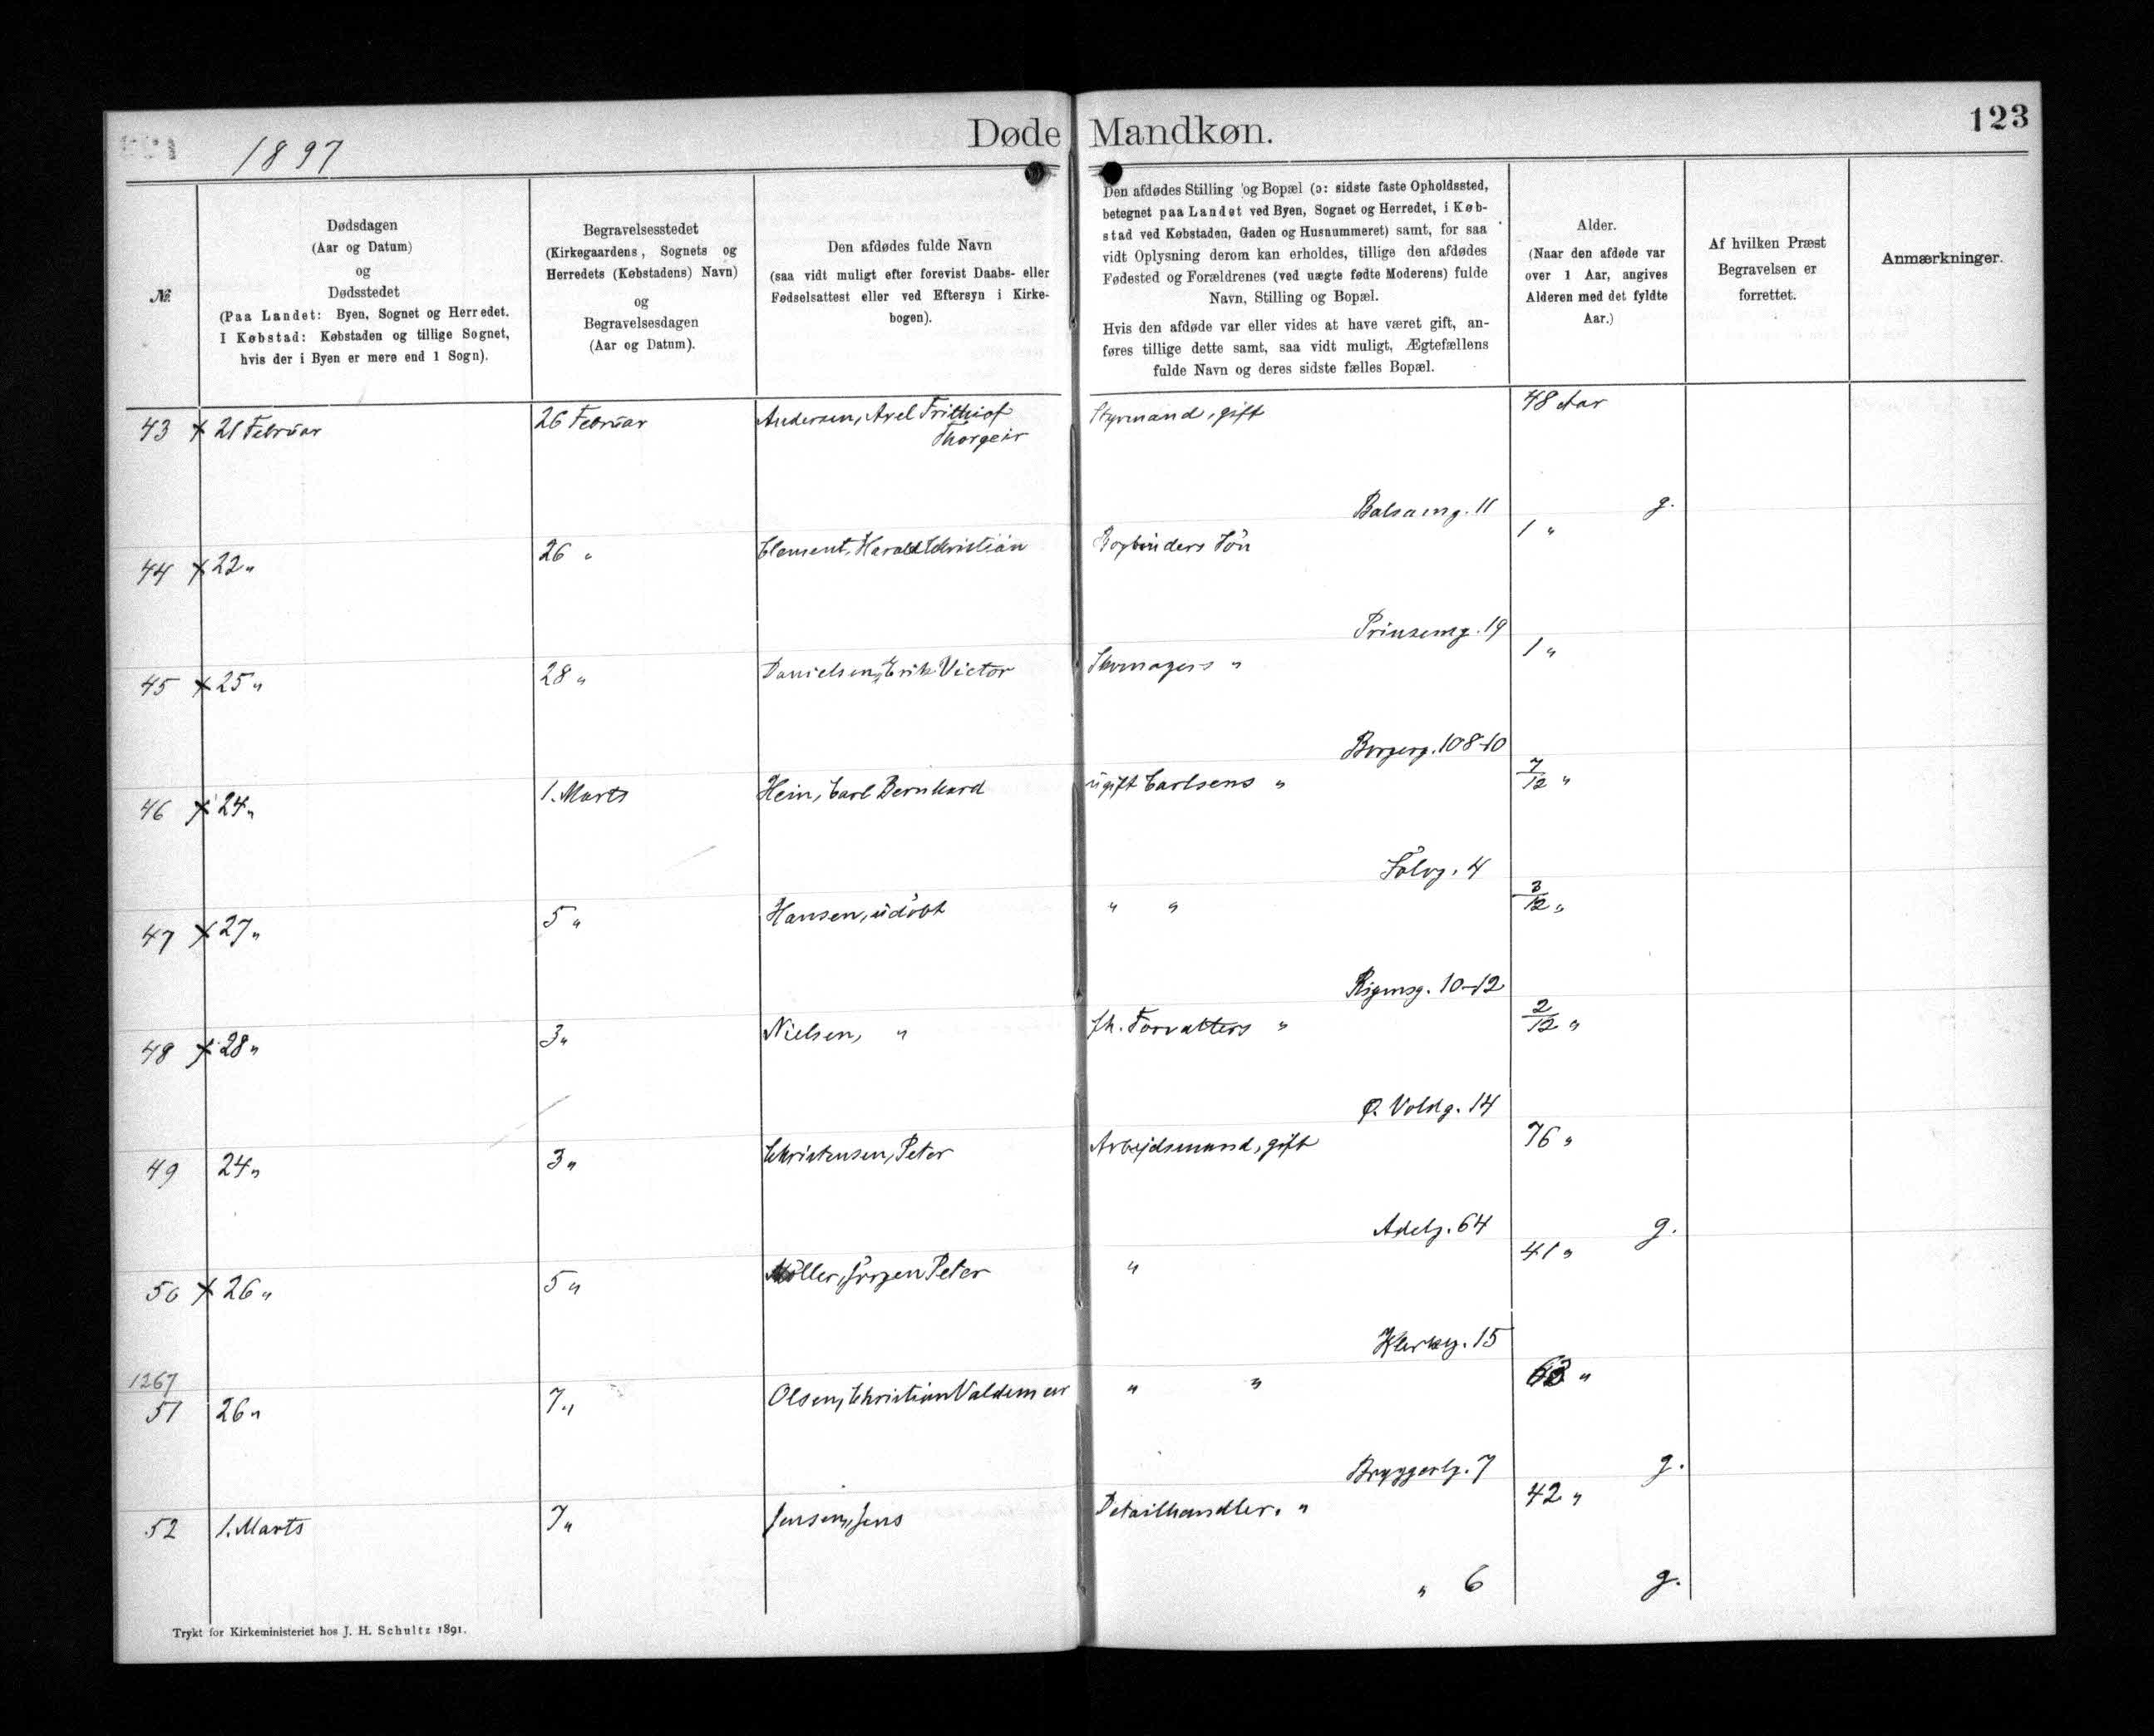 1897
Døde Mandkøn.
123
№
Dødsdagen
(Aar og Datum)
og
Dødsstedet
(Paa Landet: Byen, Sognet og Herredet.
I Købstad: Købstaden og tillige Sognet,
hvis der i Byen er mere end 1 Sogn).
Begravelsesstedet
(Kirkegaardens, Sognets og
Herredets (Købstadens) Navn)
og
Begravelsesdagen
(Aar og Datum).
Den afdødes fulde Navn
(saa vidt muligt efter forevist Daabs- eller
Fødselsattest eller ved Eftersyn i Kirke-
bogen).
Den afdødes Stilling og Bopæl (ɔ: sidste faste Opholdssted,
betegnet paa Landet ved Byen, Sognet og Herredet, i Køb-
stad ved Købstaden, Gaden og Husnummeret) samt, for saa
vidt Oplysning derom kan erholdes, tillige den afdødes
Fødested og Forældrenes (ved uægte fødte Moderens) fulde
Navn, Stilling og Bopæl.
Hvis den afdøde var eller vides at have været gift, an-
føres tillige dette samt, saa vidt muligt, Ægtefællens
fulde Navn og deres sidste fælles Bopæl.
Alder.
(Naar den afdøde var
over 1 Aar, angives
Alderen med det fyldte
Aar.)
Af hvilken Præst
Begravelsen er
forrettet.
Anmærkninger.
43 x 21 Februar 26 Februar Andersen, Axel Frithiof Styrmand, gift 48 Aar
Thorgeir
Balsamg. 11 g.
44 x 22 " 26 " Clement, Harald Christian Bogbinders Søn 1 "
Prinsensg. 19
45 x 25 " 28 " Danielsen, Erik Victor Skomagers " 1 "
Borgerg. 108-10
46 x 24 " 1. Marts Hein, Carl Bernhard ugift Carlsens " 7/12 "
Sølvg. 4
47 x 27 " 5 " Hansen, udøbt " " 3/12 "
Rigensg. 10-12
48 x 28 " 3 " Nielsen, " fh. Forvalters " 2/12 "
Ø. Voldg. 14
49 24 " 3 " Christensen, Peter Arbejdsmand, gift 76 "
Adelg. 64 g.
50 x 26 " 5 " Møller, Jørgen Peter " 41 "
Klerkeg. 15
1267
51 26 " 7 " Olsen, Christian Valdemar " " "
Bryggerlg. 7 g.
52 1. Marts 7 " Jensen, Jens Detailhandler. " 42 "
" 6 g.
Trykt for Kirkeministeriet hos J. H. Schultz 1891.